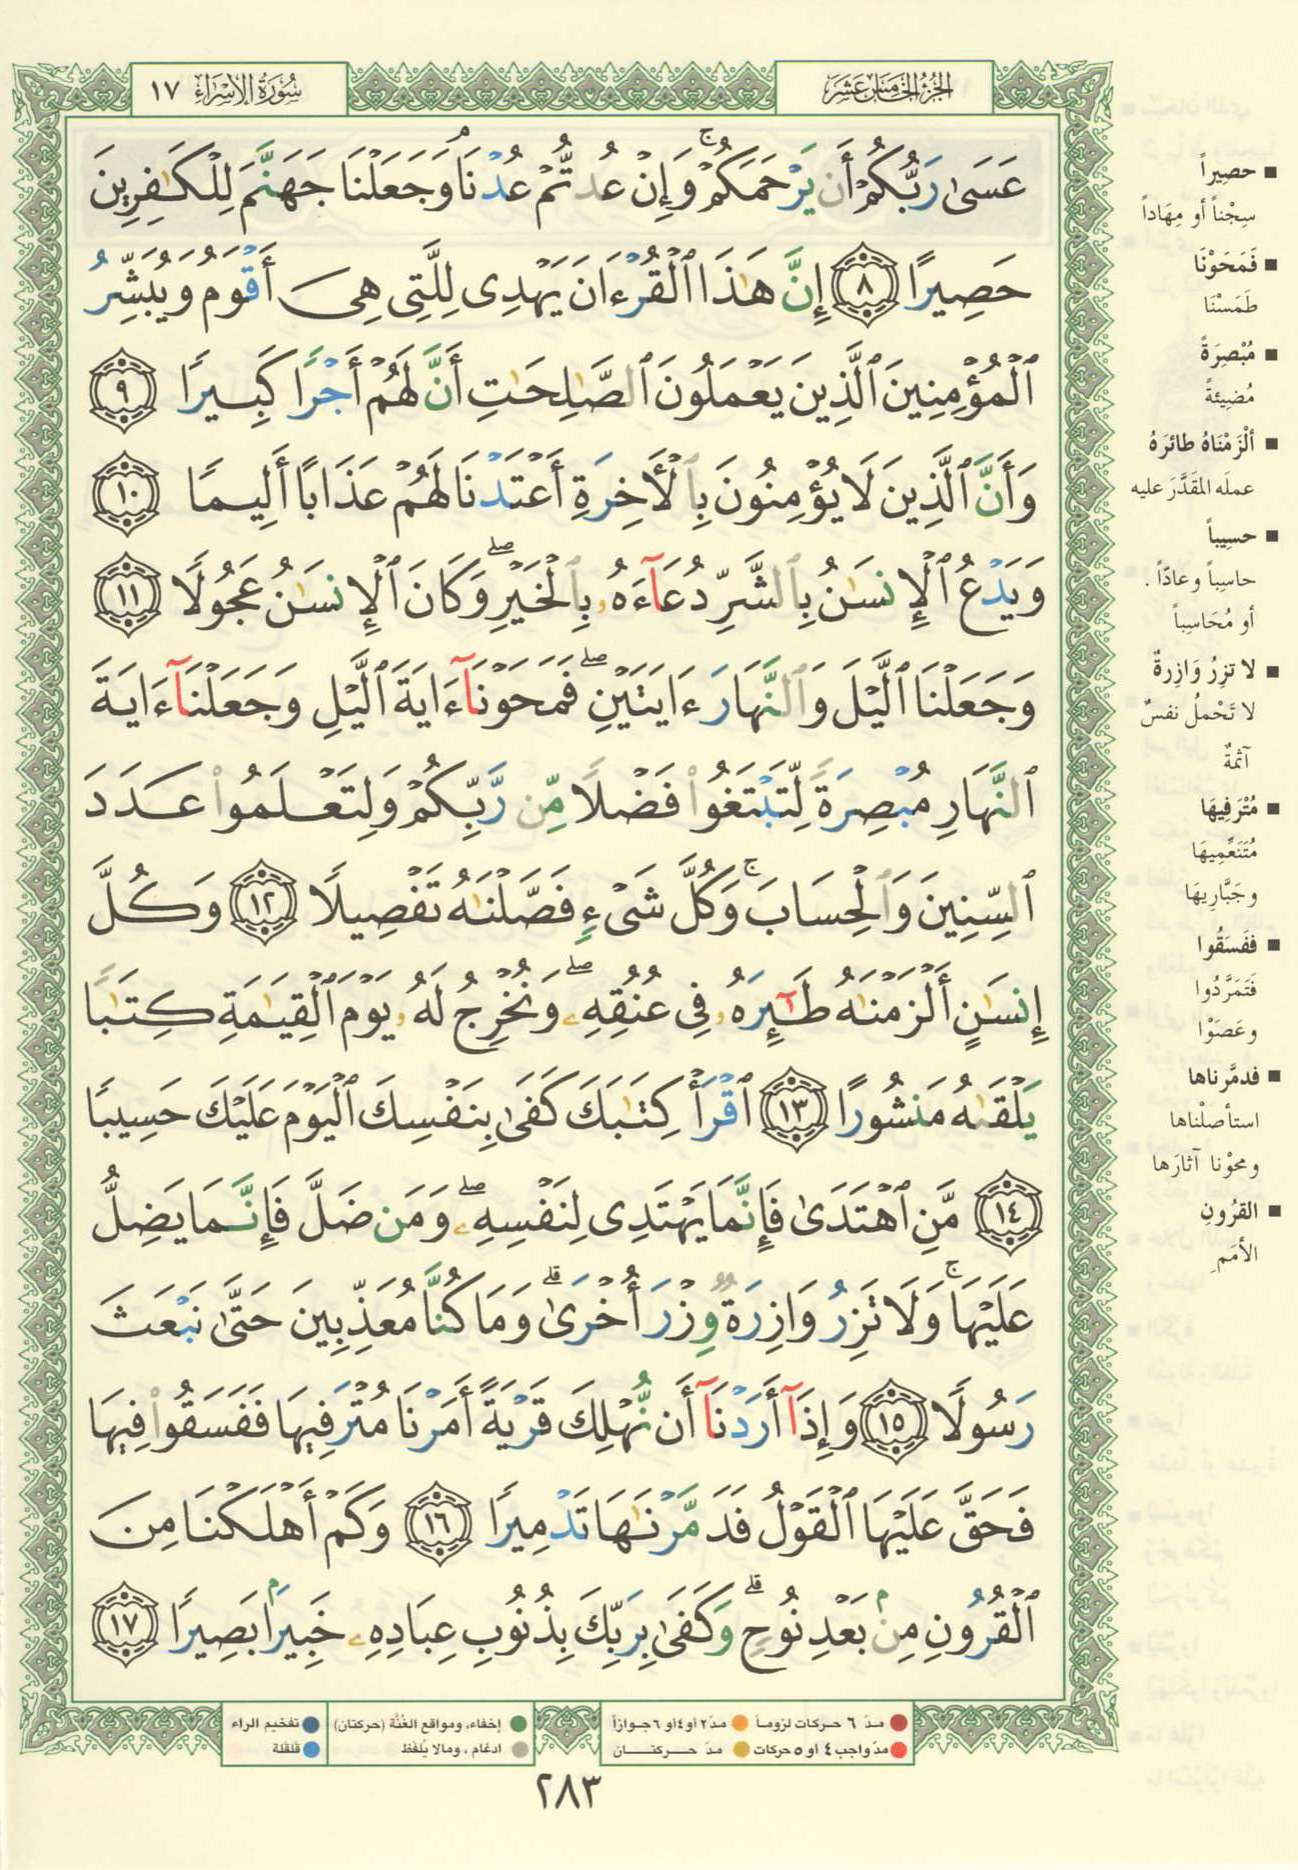 سُورَةُ الإِسْرَاء ١٧
الجُزْءُ الخَامِسَ عَشَرَ
عَسَىٰ رَبُّكُمْ أَن يَرْحَمَكُمْ ۚ وَإِنْ عُدتُّمْ عُدْنَا ۘ وَجَعَلْنَا جَهَنَّمَ لِلْكَـٰفِرِينَ
حَصِيرًا ٨ إِنَّ هَـٰذَا ٱلْقُرْءَانَ يَهْدِى لِلَّتِى هِىَ أَقْوَمُ وَيُبَشِّرُ
ٱلْمُؤْمِنِينَ ٱلَّذِينَ يَعْمَلُونَ ٱلصَّـٰلِحَـٰتِ أَنَّ لَهُمْ أَجْرًا كَبِيرًا ٩
وَأَنَّ ٱلَّذِينَ لَا يُؤْمِنُونَ بِٱلْـَٔاخِرَةِ أَعْتَدْنَا لَهُمْ عَذَابًا أَلِيمًا ١٠
وَيَدْعُ ٱلْإِنسَـٰنُ بِٱلشَّرِّ دُعَآءَهُۥ بِٱلْخَيْرِ ۖ وَكَانَ ٱلْإِنسَـٰنُ عَجُولًا ١١
وَجَعَلْنَا ٱلَّيْلَ وَٱلنَّهَارَ ءَايَتَيْنِ ۖ فَمَحَوْنَآ ءَايَةَ ٱلَّيْلِ وَجَعَلْنَآ ءَايَةَ
ٱلنَّهَارِ مُبْصِرَةً لِّتَبْتَغُوا۟ فَضْلًا مِّن رَّبِّكُمْ وَلِتَعْلَمُوا۟ عَدَدَ
ٱلسِّنِينَ وَٱلْحِسَابَ ۚ وَكُلَّ شَىْءٍ فَصَّلْنَـٰهُ تَفْصِيلًا ١٢ وَكُلَّ
إِنسَـٰنٍ أَلْزَمْنَـٰهُ طَـٰٓئِرَهُۥ فِى عُنُقِهِۦ ۖ وَنُخْرِجُ لَهُۥ يَوْمَ ٱلْقِيَـٰمَةِ كِتَـٰبًا
يَلْقَىٰهُ مَنشُورًا ١٣ ٱقْرَأْ كِتَـٰبَكَ كَفَىٰ بِنَفْسِكَ ٱلْيَوْمَ عَلَيْكَ حَسِيبًا
١٤ مَّنِ ٱهْتَدَىٰ فَإِنَّمَا يَهْتَدِى لِنَفْسِهِۦ ۖ وَمَن ضَلَّ فَإِنَّمَا يَضِلُّ
عَلَيْهَا ۚ وَلَا تَزِرُ وَازِرَةٌ وِزْرَ أُخْرَىٰ ۗ وَمَا كُنَّا مُعَذِّبِينَ حَتَّىٰ نَبْعَثَ
رَسُولًا ١٥ وَإِذَآ أَرَدْنَآ أَن نُّهْلِكَ قَرْيَةً أَمَرْنَا مُتْرَفِيهَا فَفَسَقُوا۟ فِيهَا
فَحَقَّ عَلَيْهَا ٱلْقَوْلُ فَدَمَّرْنَـٰهَا تَدْمِيرًا ١٦ وَكَمْ أَهْلَكْنَا مِنَ
ٱلْقُرُونِ مِنۢ بَعْدِ نُوحٍ ۗ وَكَفَىٰ بِرَبِّكَ بِذُنُوبِ عِبَادِهِۦ خَبِيرًۢا بَصِيرًا ١٧
■ حصِيراً
سِجْناً أو مِهَاداً
■ فَمَحَوْنَا
طَمَسْنَا
■ مُبْصِرَةً
مُضِيئةً
■ ألْزَمْنَاهُ طائرَهُ
عملَه المقَدَّرَ عليه
■ حسِيباً
حاسِباً وعادّاً .
أو مُحَاسِباً
■ لا تزِرُ وَازِرةٌ
لا تَحْملُ نفسٌ
آثمةٌ
■ مُتْرَفِيهَا
مُتَنَعِّمِيهَا
وجَبَّارِيهَا
■ ففَسَقُوا
فَتَمَرَّدُوا
وعَصَوْا
■ فدمَّرناها
استأصلْناها
ومحوْنا آثارَها
■ القرُونِ
الأمَم
مدّ ٦ حركات لزوماً مدّ ٢ أو ٤ أو ٦ جوازاً
مدّ واجب ٤ أو ٥ حركات مدّ حركتان
إخفاء، ومواقع الغُنَّة (حركتان) تفخيم الراء
ادغام، ومالا يُلفَظ قلقلة
٢٨٣